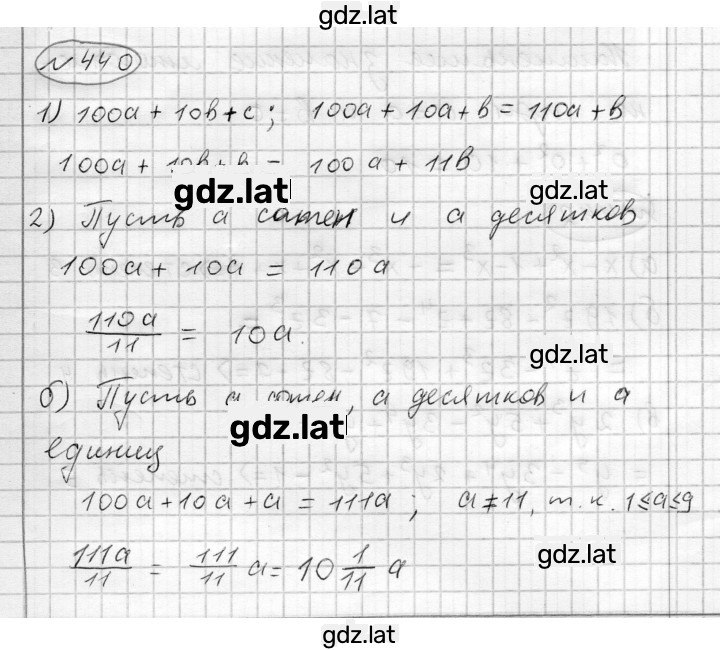 gdz.lat
№ 440
1) 100a + 10b + c ; 100a + 10a + b = 110a + b
100a + 10b + b = 100a + 11b
gdz.lat
gdz.lat
2) Пусть a сотен и a десятков
100a + 10a = 110a
110a/11 = 10a.
gdz.lat
б) Пусть a сотен, a десятков и a
gdz.lat
единиц
100a + 10a + a = 111a ; a ≠ 11, т.к. 1≤a≤9
111a/11 = 111/11 a = 10 1/11 a
gdz.lat
gdz.lat